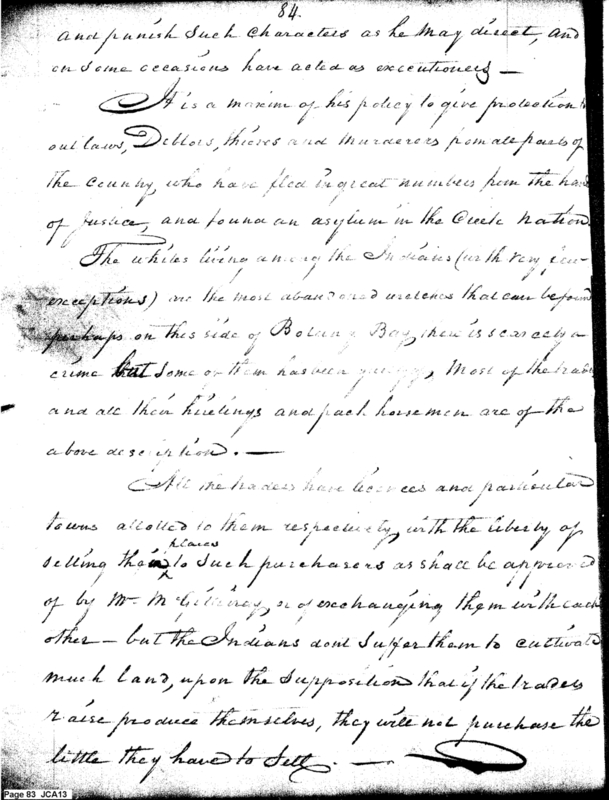 84.
and punish such characters as he may direct, and
on some occasions have acted as executioners —
It is a maxim of his policy to give protection to
outlaws, Debtors, thieves and murderers from all parts of
the country, who have fled in great numbers from the hand
of Justice, and found an asylum in the Creek Nation.
The whites living among the Indians (with very few
exceptions) are the most abandoned wretches that can be found
perhaps on this side of Botany Bay, there is scarcely a
crime but some of them has been guilty, Most of the traders
and all their hirelings and pack horsemen are of the
above description. —
All the traders have licences and particular
towns allotted to them respectively, with the liberty of
selling their places to such purchasers as shall be approved
of by Mr. McGillivray, or of exchanging them with each
other — but the Indians dont suffer them to cultivate
much land, upon the supposition that if the traders
raise produce themselves, they will not purchase the
little they have to sell. —
Page 83 JCA13